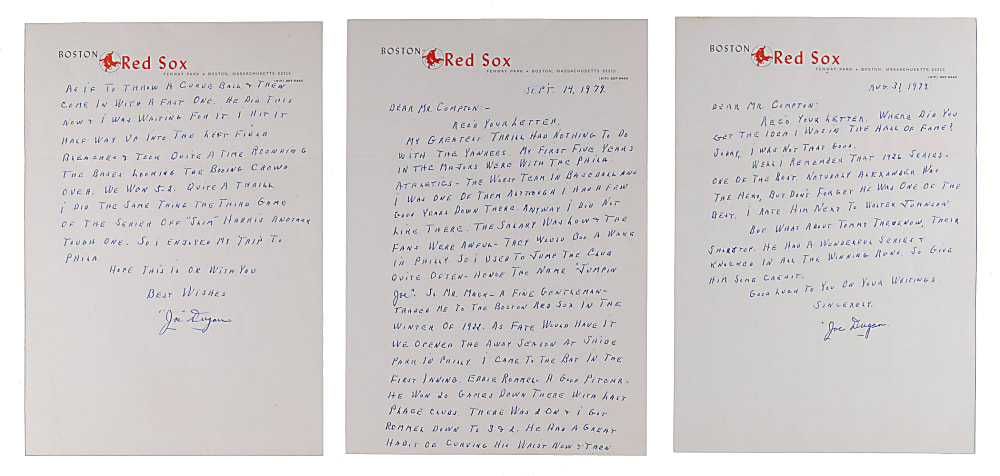 BOSTON Red Sox
FENWAY PARK • BOSTON, MASSACHUSETTS 02215
As if To Throw A Curve Ball & Then
Come In With A Fast One. He Did This
Now & I Was Waiting For It. I Hit It
Half Way Up Into The Left Field
Bleachers & Took Quite A Time Rounding
The Bases Looking The Booing Crowd
Over. We Won 5-2. Quite A Thrill
I Did The Same Thing The Third Game
Of The Series Off "Slim" Harris Another
Tough One. So I Enjoyed My Trip To
Phila.
Hope This Is OK With You
Best Wishes
"Joe" Dugan
BOSTON Red Sox
FENWAY PARK • BOSTON, MASSACHUSETTS 02215
Sept. 14, 1979.
Dear Mr. Compton:-
Rec'd Your Letter.
My Greatest Thrill Had Nothing To Do
With The Yankees. My First Five Years
In The Majors Were With The Phila.
Athletics - The Worst Team In Baseball And
I Was One Of Them Although I Had A Few
Good Years Down There. Anyway I Did Not
Like There. The Salary Was Low & The
Fans Were Awful - They Would Boo A Wake
In Philly. So I Used To Jump The Club
Quite Often - Hence The Name "Jumpin
Joe". So Mr. Mack - A Fine Gentleman -
Traded Me To The Boston Red Sox In The
Winter Of 1922. As Fate Would Have It
We Opened The Away Season At Shibe
Park In Philly. I Came To The Bat In The
First Inning. Eddie Rommel - A Good Pitchr -
He Won 20 Games Down There With Last
Place Clubs. There Was 2 On & I Got
Rommel Down To 3 & 2. He Had A Great
Habit Of Curving His Wrist Now & Then
BOSTON Red Sox
FENWAY PARK • BOSTON, MASSACHUSETTS 02215
Aug. 31, 1979
Dear Mr. Compton:
Rec'd Your Letter. Where Did You
Get The Idea I Was In The Hall Of Fame?
Sorry, I Was Not That Good.
Well I Remember That 1926 Series.
One Of The Best. Naturally Alexander Was
The Hero, But Don't Forget He Was One Of The
Best. I Rate Him Next To Walter Johnson
But What About Tommy Thevenow, Their
Shortstop. He Had A Wonderful Series &
Knocked In All The Winning Runs. So Give
Him Some Credit.
Good Luck To You On Your Writings.
Sincerely,
"Joe Dugan.